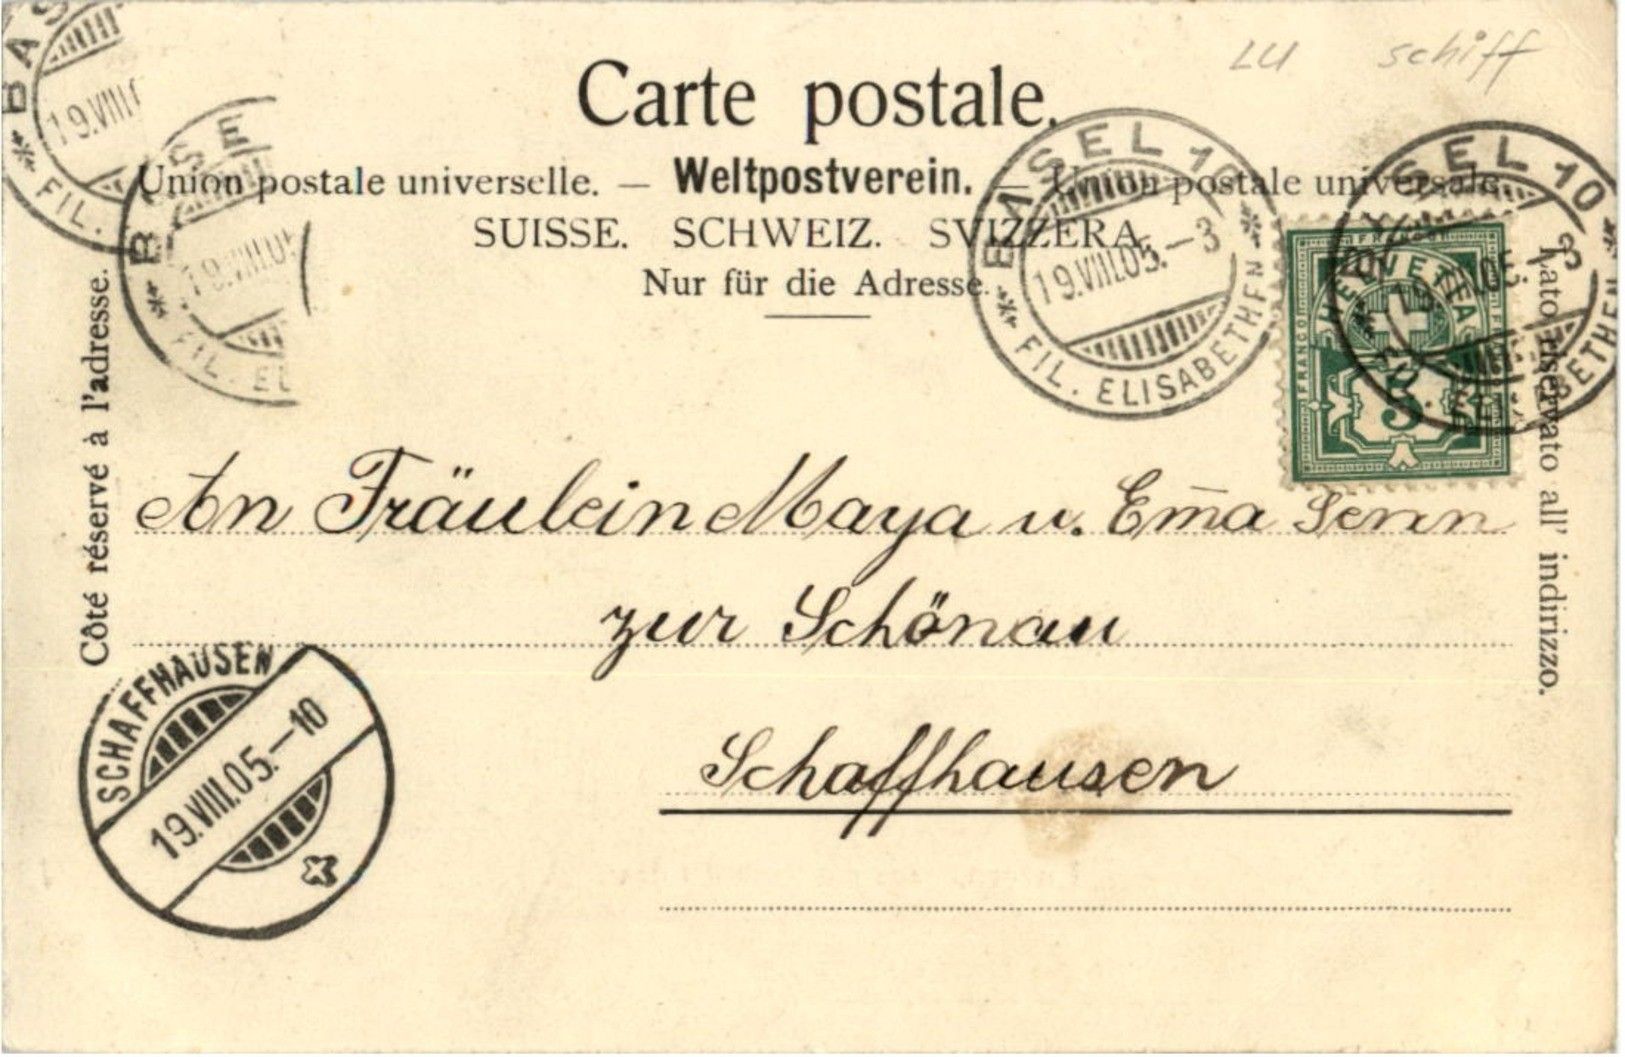 LU schiff
Carte postale.
Union postale universelle. — Weltpostverein. — Union postale universale.
SUISSE. SCHWEIZ. SVIZZERA.
Nur für die Adresse.
Côté réservé à l'adresse.
Lato riservato all' indirizzo.
BAS
19.VIII.0
FIL.
BASE
19.VIII.05
FIL. EL
BASEL 10
19.VIII.05.-3
FIL. ELISABETHEN
BASEL 10
19.VIII.05.-3
FIL. ELISABETHEN
FRANCO
HELVETIA
5
An Fräulein Maya u. Em̄a Senn
zur Schönau
Schaffhausen
SCHAFFHAUSEN
19.VIII.05.-10